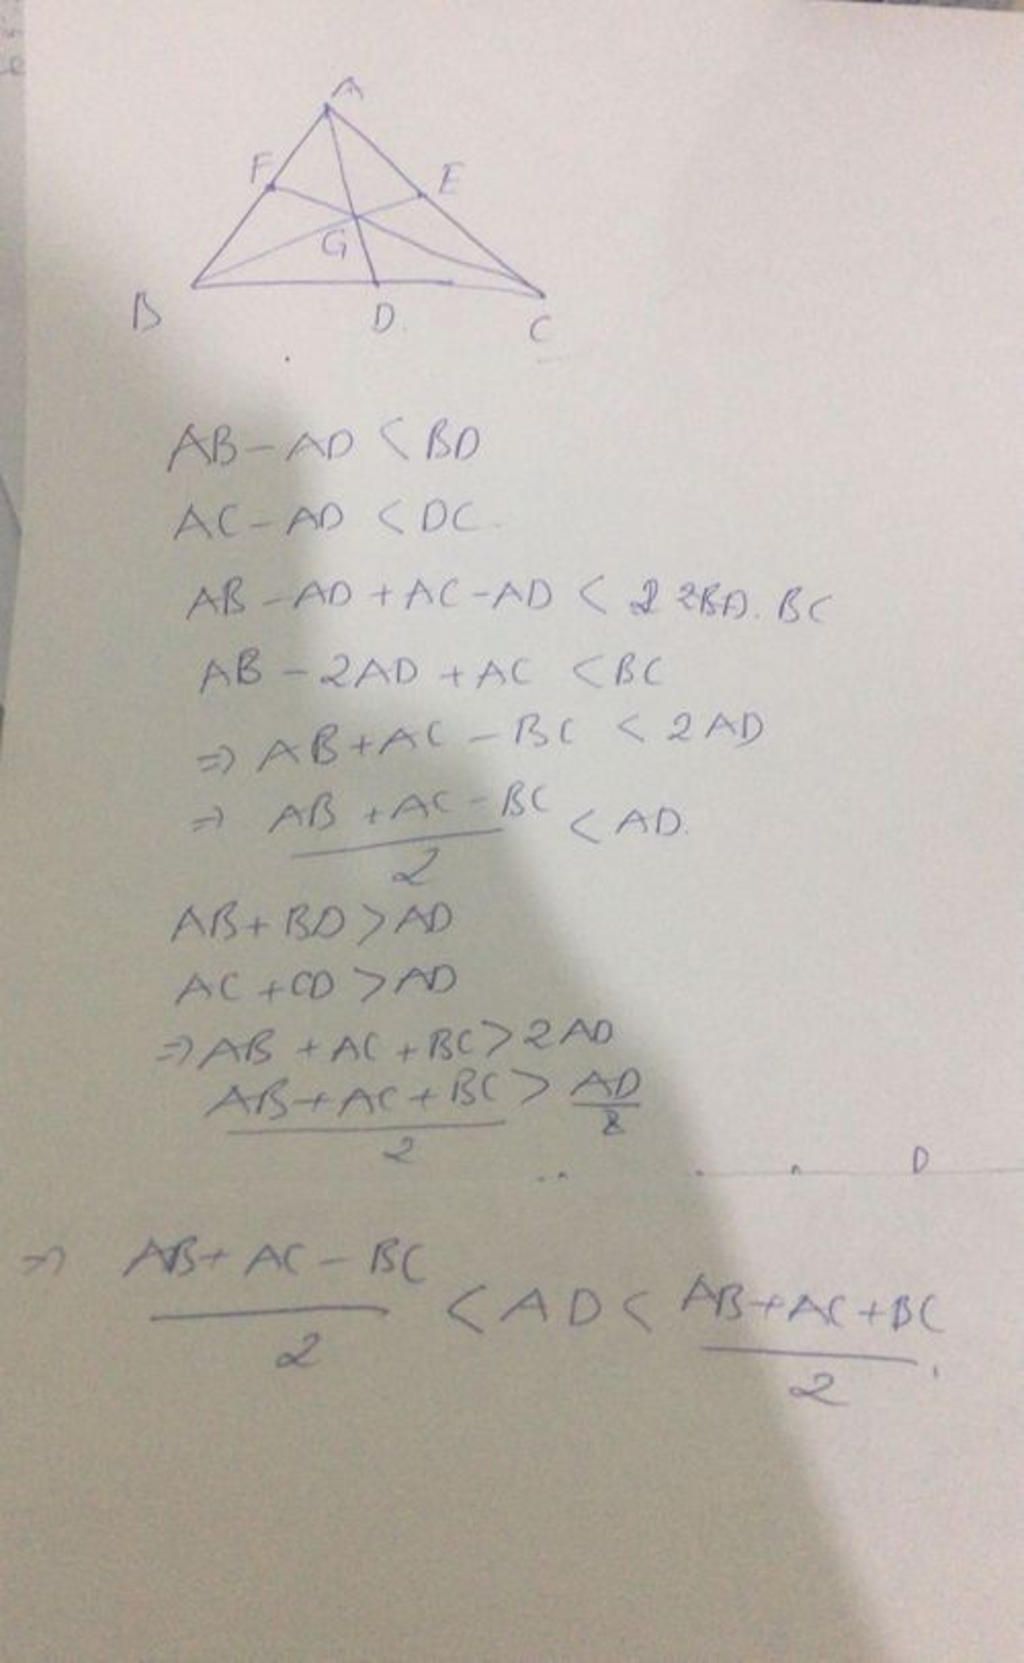 A
F E
G
B D C
AB - AD < BD
AC - AD < DC
AB - AD + AC - AD < 2BD. BC
AB - 2AD + AC < BC
⇒ AB + AC - BC < 2AD
⇒ AB + AC - BC / 2 < AD.
AB + BD > AD
AC + CD > AD
⇒ AB + AC + BC > 2AD
AB + AC + BC / 2 > AD / 2
D
⇒ AB + AC - BC / 2 < AD < AB + AC + BC / 2